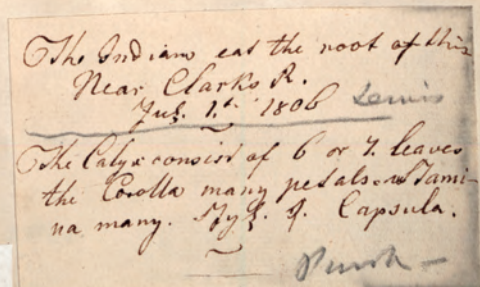 The Indians eat the root of this
Near Clarks R.
Jul. 1.st 1806 Lewis
The Calyx consist of 6 or 7. leaves
the Corolla many petals Stami-
na many. Capsula.
Pursh